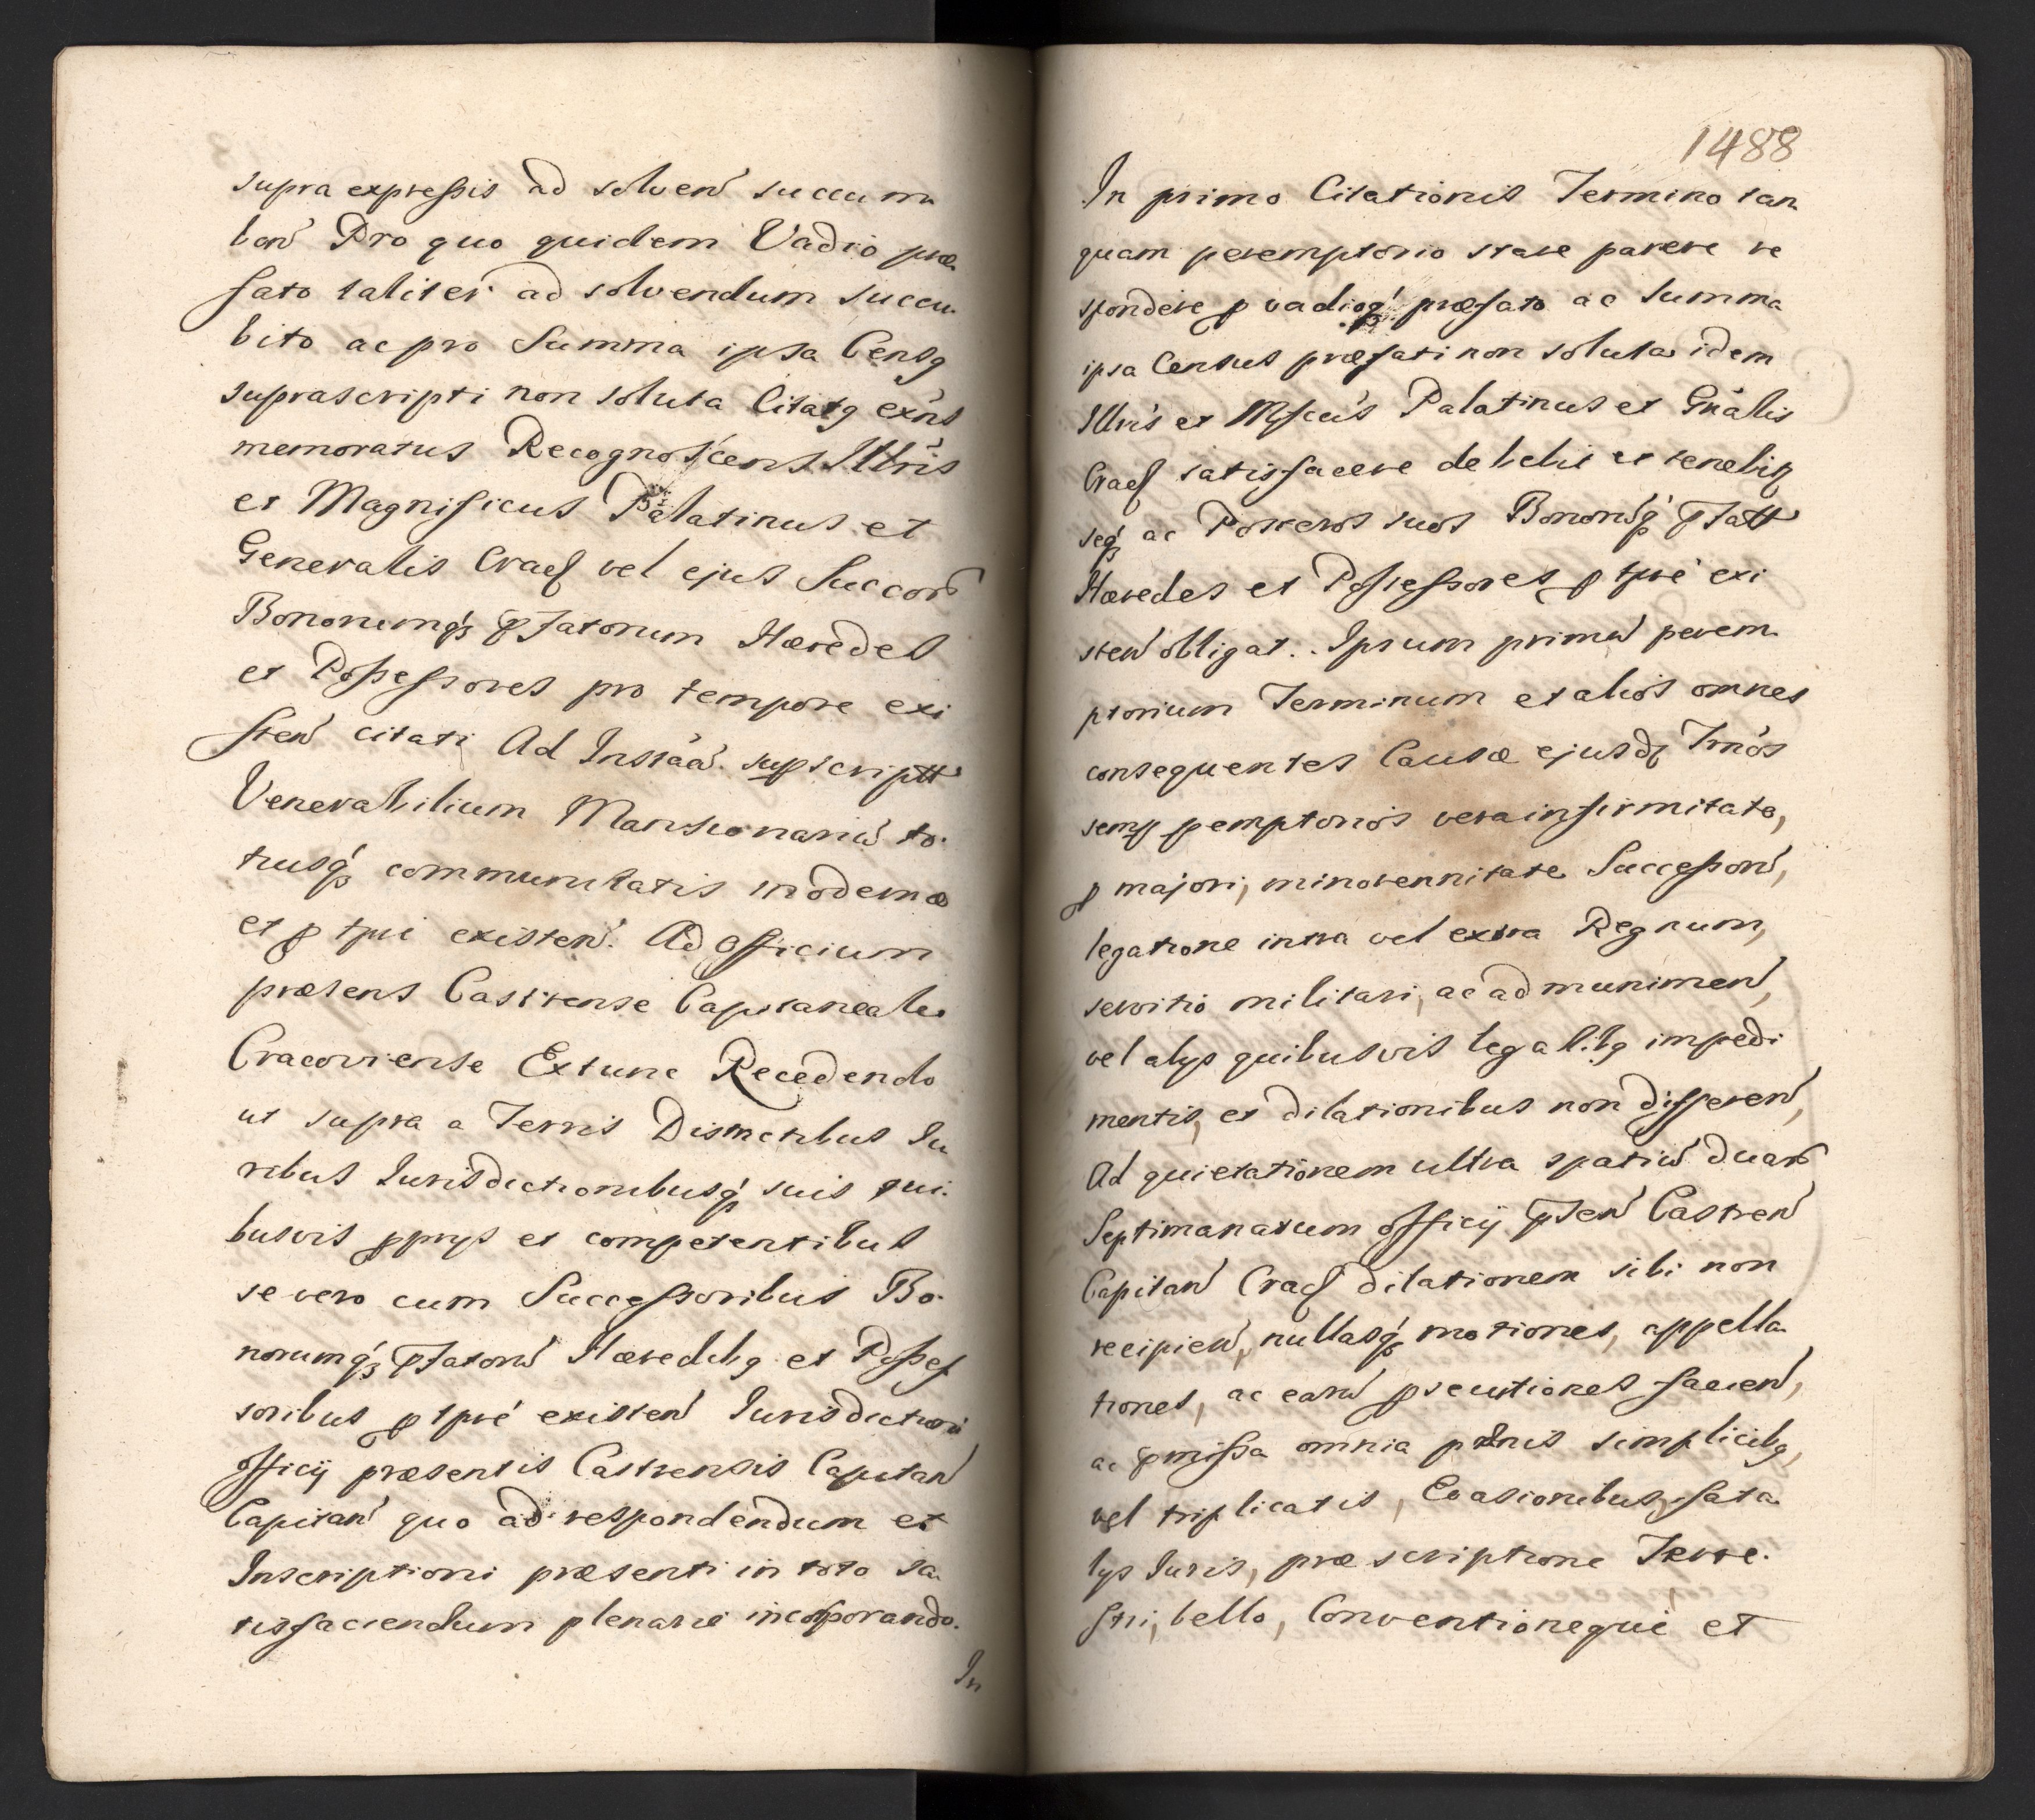 supra expressis ad solven succum
ben Pro quo quidem Vadio præ
fato taliter ad solvendum succu
bito ac pro Summa ipsa Censq
suprascripti non soluta Citatq exñs
memoratus Recognoscens Illris
et Magnificus Palatinus et
Generalis Cracẽ vel ejus Succor
Bonorumq́ pſatorum Hæredes
et Possessores pro tempore exi
sten citati Ad Instãã supscriptt
Venerabilium Mansionariu to
tiusq́ communitatis modernæ
et p tpŕi existen. Ad officium
præsens Castrense Capitaneale
Cracoviense Extunc Recedendo
ut supra a Terris Districtibus Iu
ribus Iurisdictionibusq́ suis qui
busvis pprys et competentibus
se vero cum Successoribus Bo
norumq́ pſatoru Hæredibq et Posses
soribus p tpŕé existen Iurisdictioni
officij præsentis Castrensis Capitan
Capitan quo ad respondendum et
Inscriptioni præsenti in toto sa
tisfaciendum plenarie incorporando.
In
1488
In primo Citationis Termino tan
quam peremptorio stare parere re
spondere p vadioq́ præfato ac Summa
ipsa Census præfati non soluta idem
Illris et Mgfcus Palatinus et Gnãlis
Cracẽ satisfacere debebit et tenebiṫ
seq́ ac Posteros suos Bonoruq́ pſatt
Hæredes et Possessores p tpŕé exi
sten obligat. Ipsum primu perem
ptorium Terminum et alios omnes
consequentes Causæ ejusd Trños
semp pemptorios vera infirmitate,
p majori, minorennitate Successoru,
legatione intra vel extra Regnum,
servitio militari, ac ad munimen,
vel alys quibusvis legalibq impedi
mentis, et dilationibus non differen,
Ad quietationem ultra spatiu duar
Septimanarum officij pſen Castren
Capitan Cracẽ dilationem sibi non
recipien, nullasq́ motiones, appella
tiones, ac earu psecutiones facien,
ac pmissa omnia pænis simplicibq,
vel triplicatis, Evasionibus, fata
lys Iuris, præscriptione Terre
stri, bello, Conventioneque et